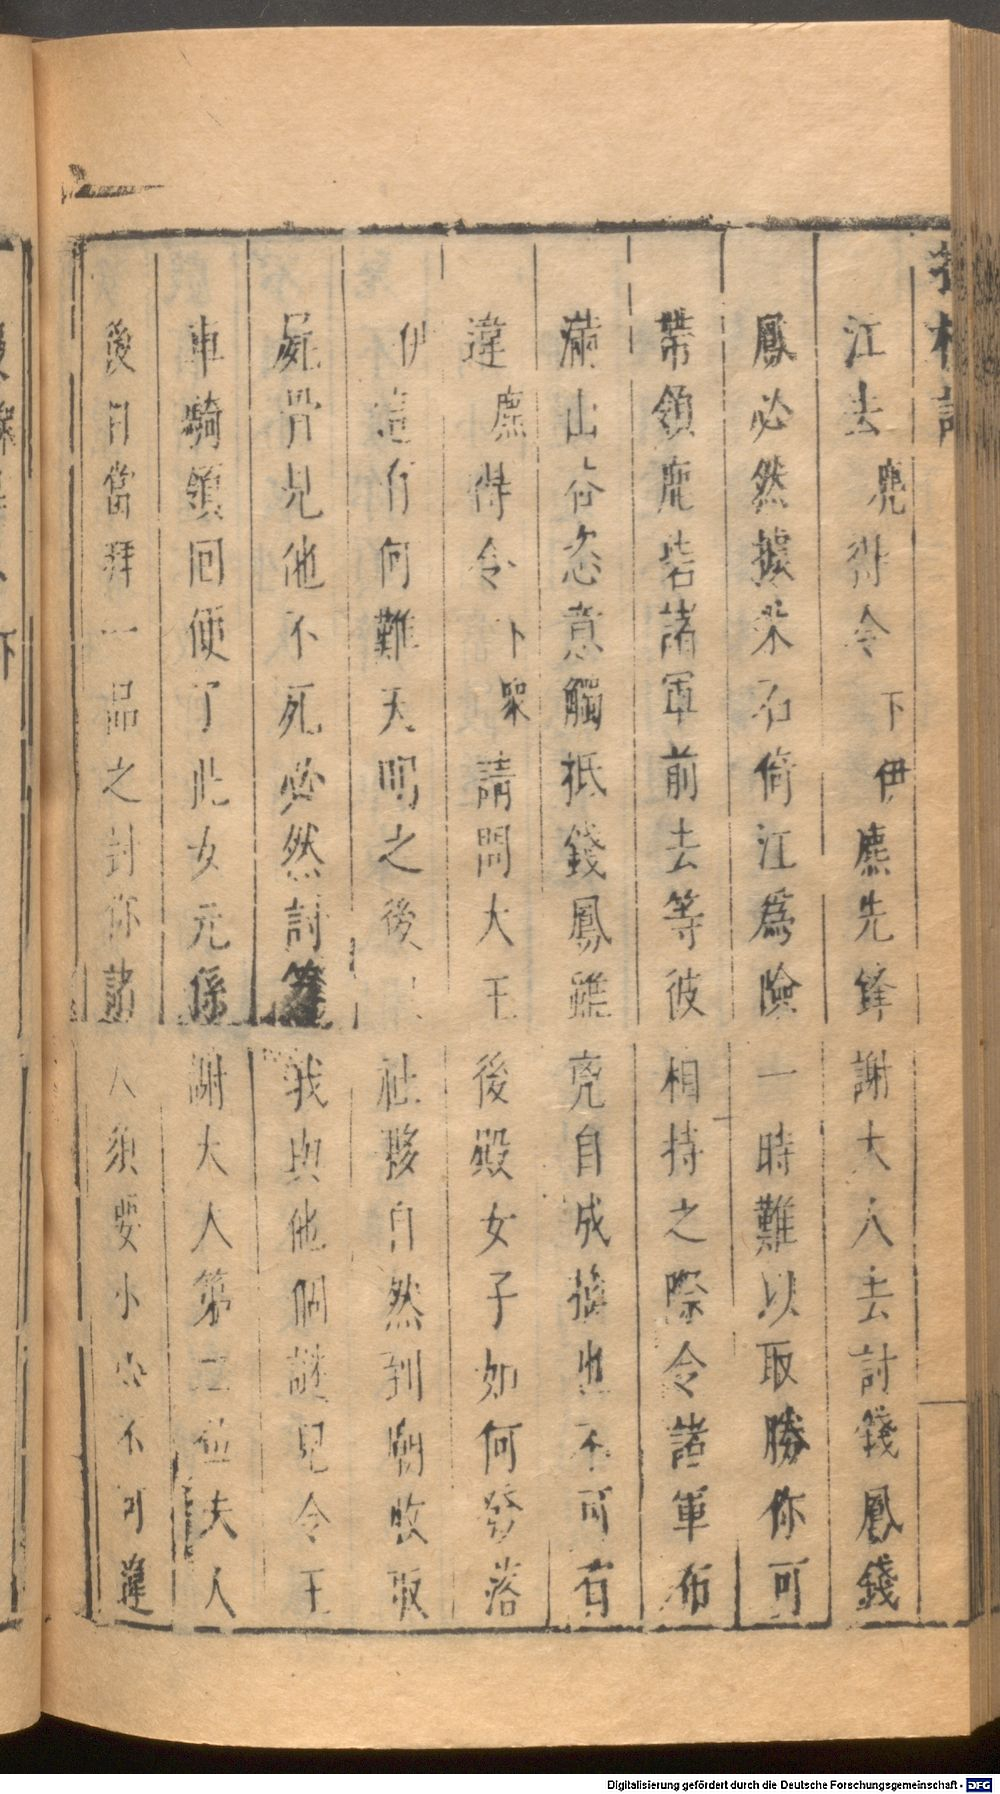 江去 麂得令 下 伊 麃先鋒謝大人去討錢鳳錢
鳳必然據采石倚江爲險一時難以取勝你可
帶領鹿砦諸軍前去等彼相持之際令諸軍布
滿山谷恣意觸抵錢鳳雖亮自成擒也不可有
違 麃得令 下 衆 請問大王後殿女子如何發落
伊 這有何難天明之後 社夥自然到廟收取
屍骨見他不死必然討 我與他個謎兒令王
車騎領回便了此女元係謝大人第二位夫人
後日當拜一品之封你諸人須要小心不可違
Digitalisierung gefördert durch die Deutsche Forschungsgemeinschaft - DFG